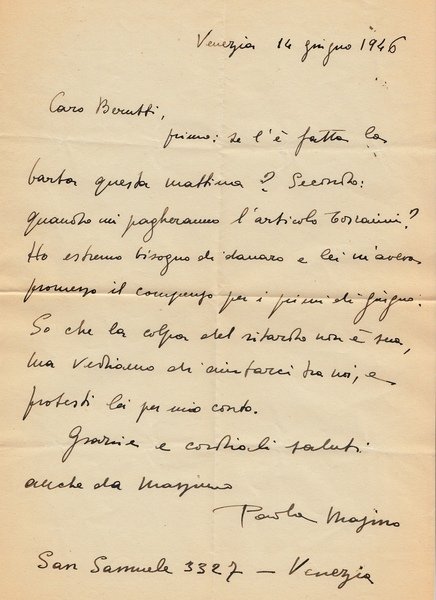 Venezia 14 giugno 1946
Caro Berutti,
primo: se l'è fatta la
barba questa mattina? Secondo:
quando mi pagheranno l'articolo Toscanini?
Ho estremo bisogno di danaro e lei m'aveva
promesso il compenso per i primi di giugno.
So che la colpa del ritardo non è sua,
ma vediamo di aiutarci tra noi, e
protesti lei per mio conto.
Grazie e cordiali saluti
anche da Massimo
Paola Masino
San Samuele 3327 — Venezia